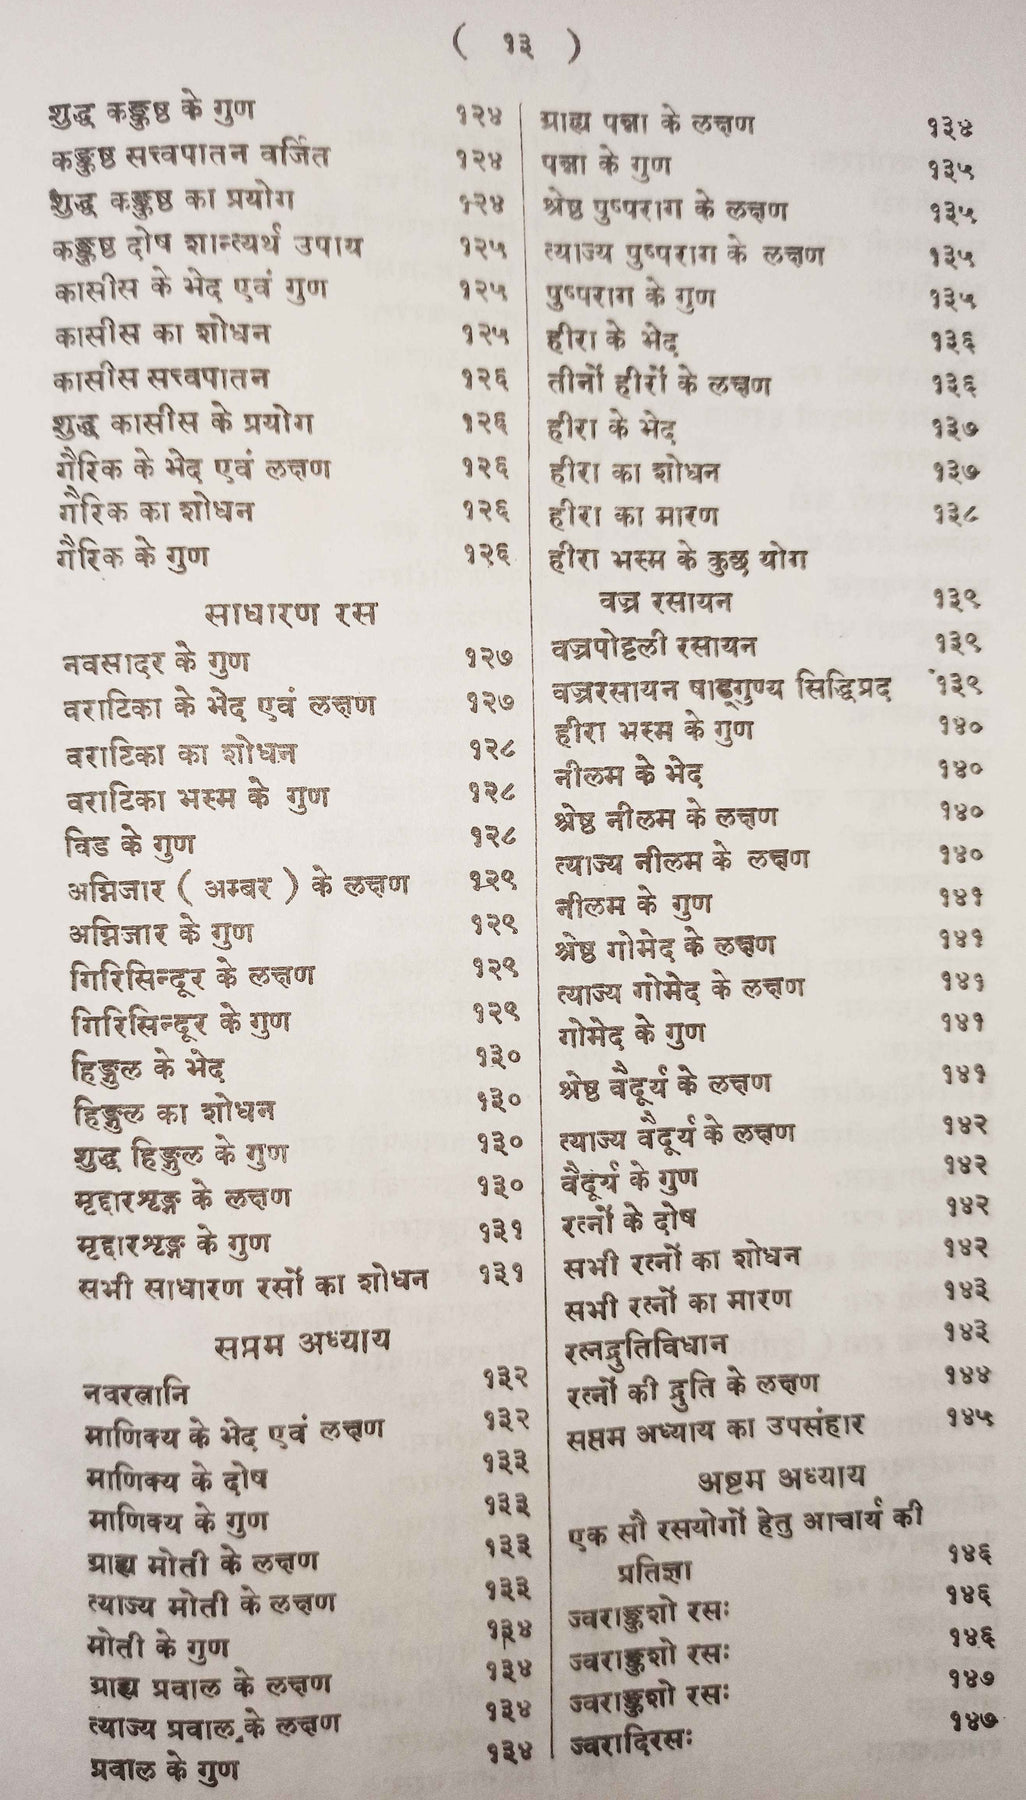 ( १३ )
शुद्ध कङ्कुष्ठ के गुण १२४
कङ्कुष्ठ सत्त्वपातन वर्जित १२४
शुद्ध कङ्कुष्ठ का प्रयोग १२४
कङ्कुष्ठ दोष शान्त्यर्थ उपाय १२५
कासीस के भेद एवं गुण १२५
कासीस का शोधन १२५
कासीस सत्त्वपातन १२६
शुद्ध कासीस के प्रयोग १२६
गैरिक के भेद एवं लक्षण १२६
गैरिक का शोधन १२६
गैरिक के गुण १२६
साधारण रस
नवसादर के गुण १२७
वराटिका के भेद एवं लक्षण १२७
वराटिका का शोधन १२८
वराटिका भस्म के गुण १२८
विड के गुण १२८
अग्निजार ( अम्बर ) के लक्षण १२९
अग्निजार के गुण १२९
गिरिसिन्दूर के लक्षण १२९
गिरिसिन्दूर के गुण १२९
हिङ्गुल के भेद १३०
हिङ्गुल का शोधन १३०
शुद्ध हिङ्गुल के गुण १३०
मृद्दारशृङ्ग के लक्षण १३०
मृद्दारशृङ्ग के गुण १३१
सभी साधारण रसों का शोधन १३१
सप्तम अध्याय
नवरत्नानि १३२
माणिक्य के भेद एवं लक्षण १३२
माणिक्य के दोष १३३
माणिक्य के गुण १३३
ग्राह्य मोती के लक्षण १३३
त्याज्य मोती के लक्षण १३३
मोती के गुण १३४
ग्राह्य प्रवाल के लक्षण १३४
त्याज्य प्रवाल के लक्षण १३४
प्रवाल के गुण १३४
ग्राह्य पन्ना के लक्षण १३४
पन्ना के गुण १३५
श्रेष्ठ पुष्पराग के लक्षण १३५
त्याज्य पुष्पराग के लक्षण १३५
पुष्पराग के गुण १३५
हीरा के भेद १३६
तीनों हीरों के लक्षण १३६
हीरा के भेद १३७
हीरा का शोधन १३७
हीरा का मारण १३८
हीरा भस्म के कुछ योग
वज्र रसायन १३९
वज्रपोट्टली रसायन १३९
वज्ररसायन षाड्गुण्य सिद्धिप्रद १३९
हीरा भस्म के गुण १४०
नीलम के भेद १४०
श्रेष्ठ नीलम के लक्षण १४०
त्याज्य नीलम के लक्षण १४०
नीलम के गुण १४१
श्रेष्ठ गोमेद के लक्षण १४१
त्याज्य गोमेद के लक्षण १४१
गोमेद के गुण १४१
श्रेष्ठ वैदूर्य के लक्षण १४१
त्याज्य वैदूर्य के लक्षण १४२
वैदूर्य के गुण १४२
रत्नों के दोष १४२
सभी रत्नों का शोधन १४२
सभी रत्नों का मारण १४३
रत्नद्रुतिविधान १४३
रत्नों की द्रुति के लक्षण १४४
सप्तम अध्याय का उपसंहार १४५
अष्टम अध्याय
एक सौ रसयोगों हेतु आचार्य की
प्रतिज्ञा १४६
ज्वराङ्कुशो रसः १४६
ज्वराङ्कुशो रसः १४६
ज्वराङ्कुशो रसः १४७
ज्वरादिरसः १४७